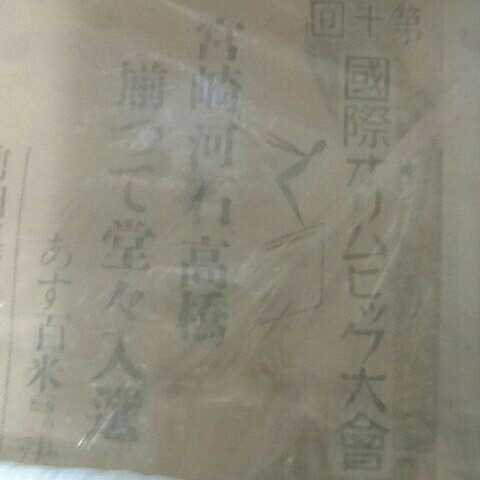 第十回
國際オリムピック大會
宮崎河石高橋
揃つて堂々入選
あす百米